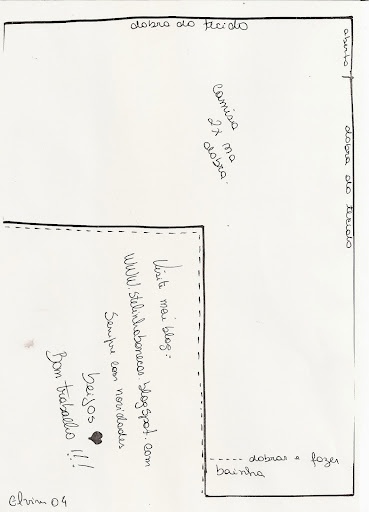 dobra do tecido
abertura
dobra do tecido
camisa
2x na
dobra.
Visite meu blog:
www.stelinhabonecas.blogspot.com
Sempre com novidades
beijos ♥
Bom trabalho!!!
---- dobrar e fazer
bainha
04